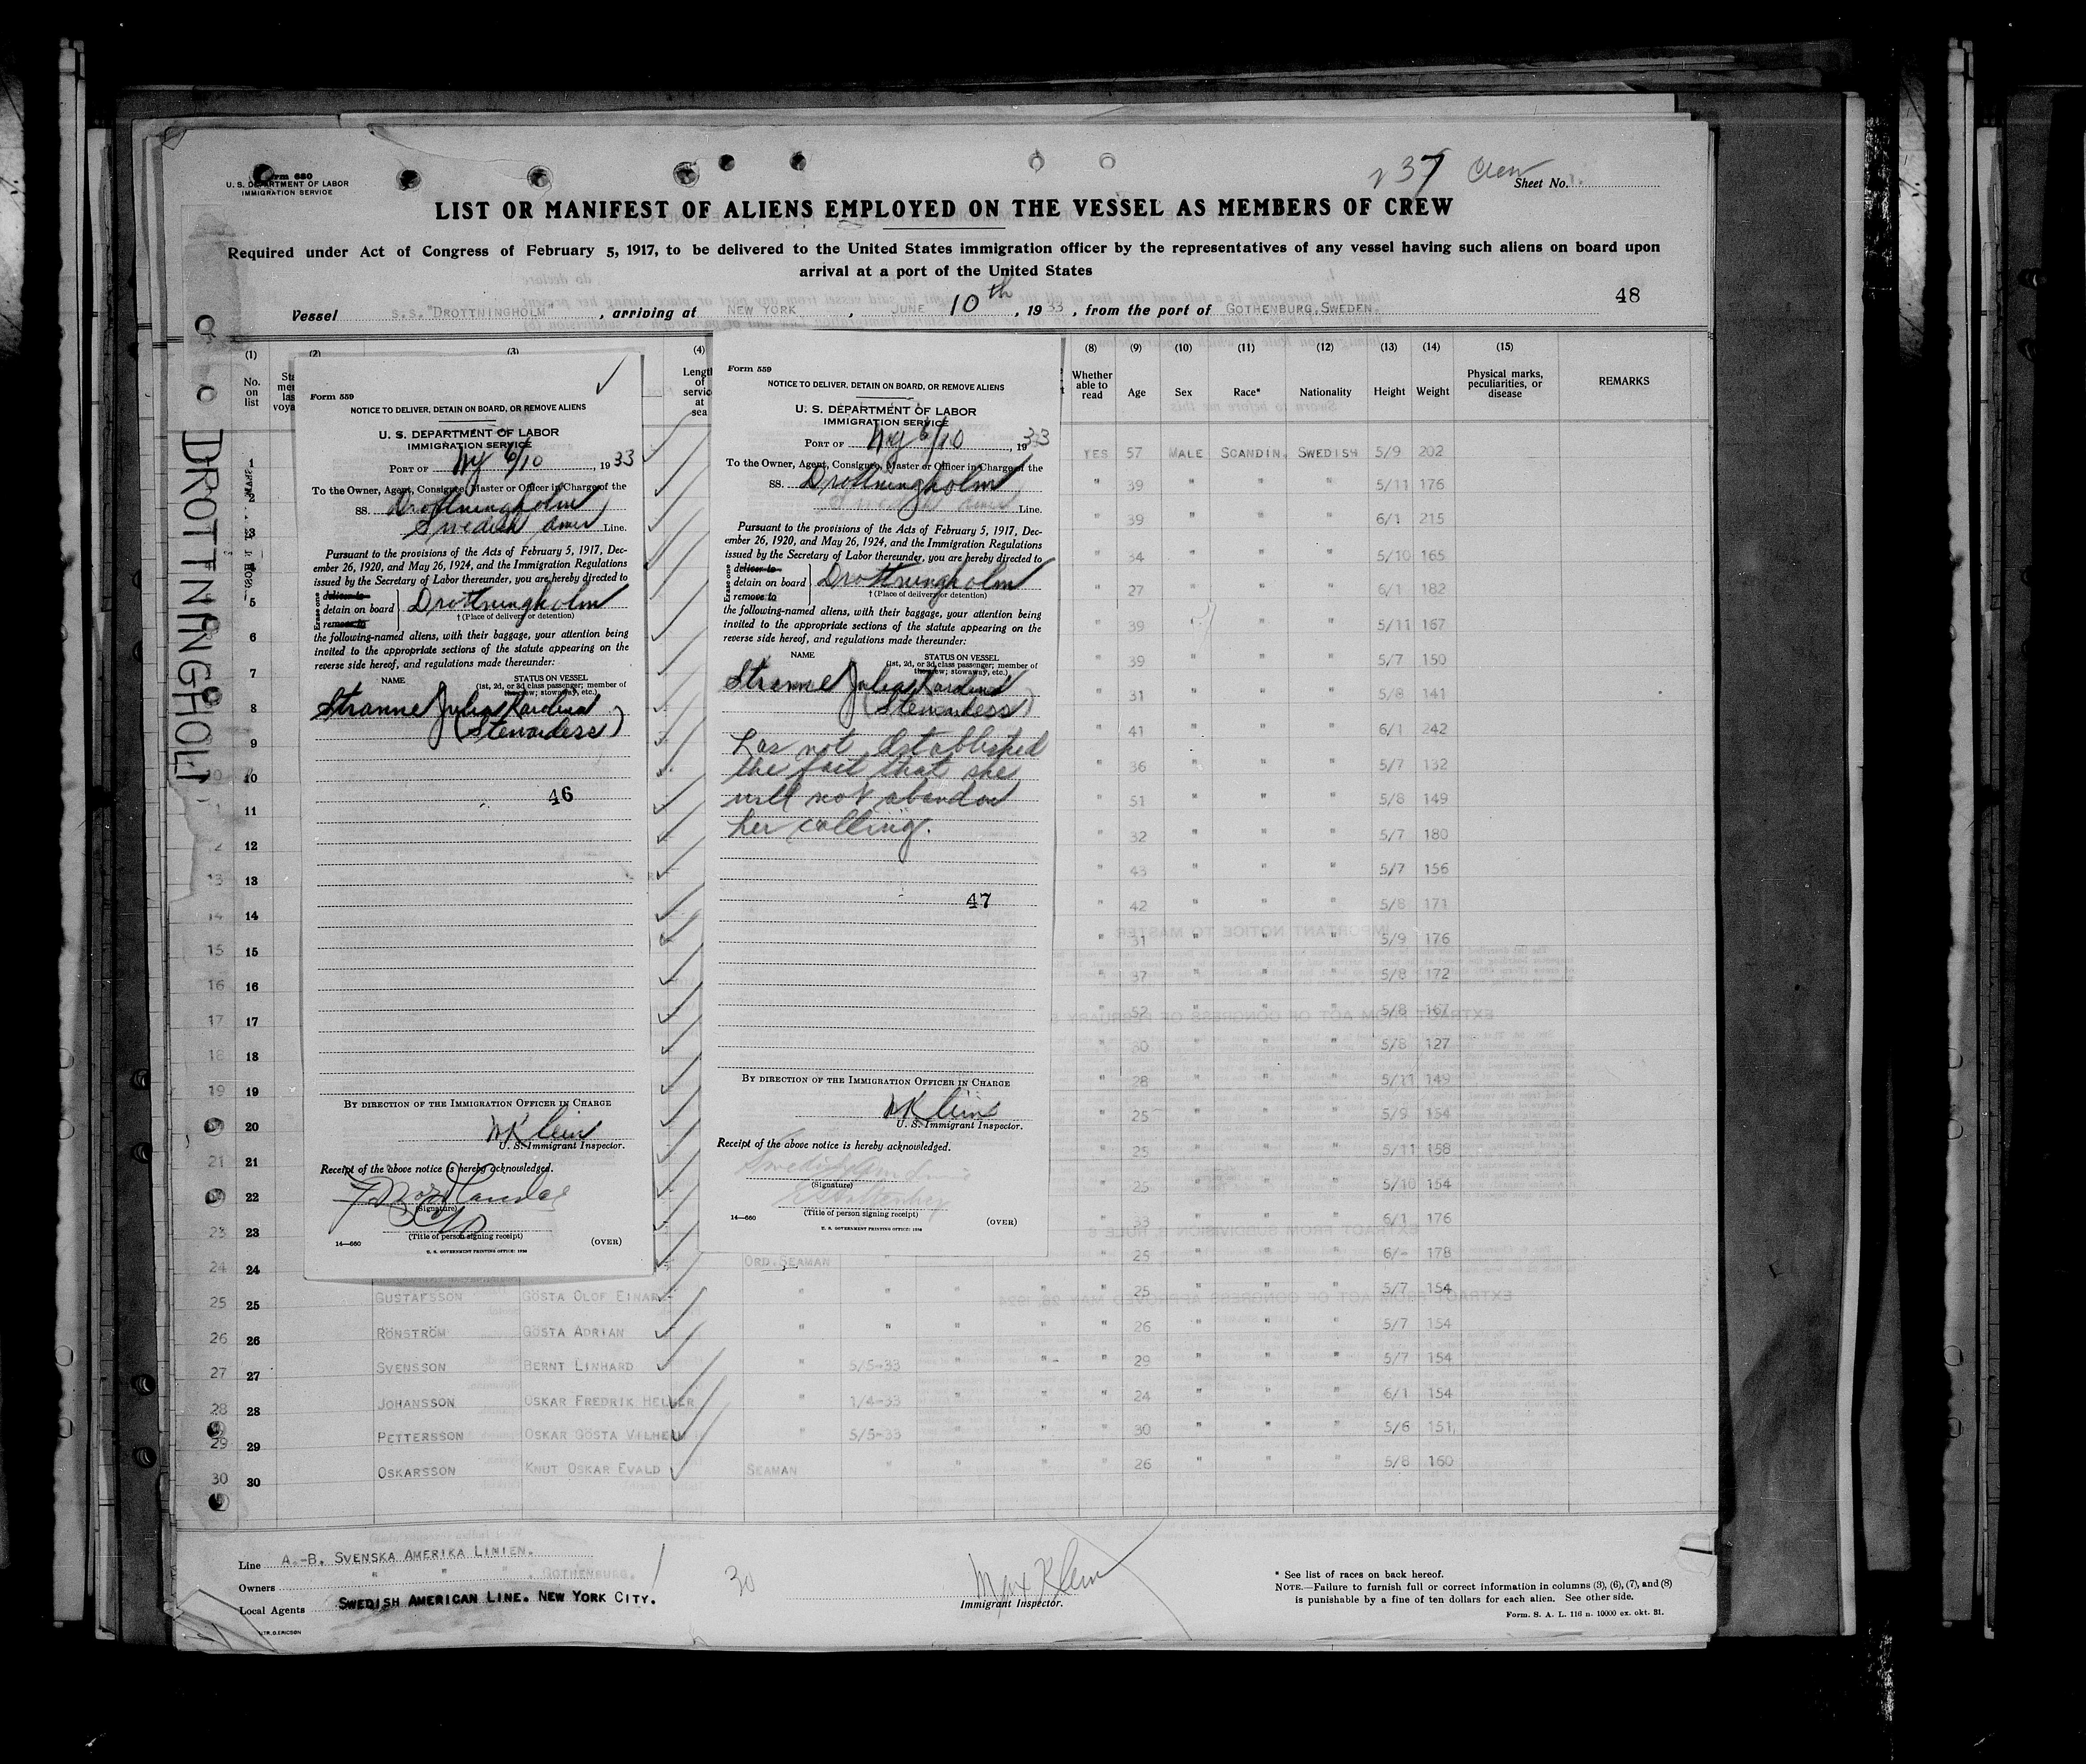 Form 680
U. S. DEPARTMENT OF LABOR
IMMIGRATION SERVICE
37 Crew
Sheet No.
LIST OR MANIFEST OF ALIENS EMPLOYED ON THE VESSEL AS MEMBERS OF CREW
Required under Act of Congress of February 5, 1917, to be delivered to the United States immigration officer by the representatives of any vessel having such aliens on board upon
arrival at a port of the United States
48
Vessel S.S."DROTTNINGHOLM", arriving at NEW YORK, JUNE 10th, 1933, from the port of GOTHENBURG, SWEDEN.
DROTTNINGHOL
(1) (2) (3) (4) (8) (9) (10) (11) (12) (13) (14) (15)
No. on list
Length of service at sea
Whether able to read
Age
Sex
Race*
Nationality
Height
Weight
Physical marks, peculiarities, or disease
REMARKS
Form 559
NOTICE TO DELIVER, DETAIN ON BOARD, OR REMOVE ALIENS
U. S. DEPARTMENT OF LABOR
IMMIGRATION SERVICE
PORT OF NY 6/10, 1933
To the Owner, Agent, Consignee, Master or Officer in Charge of the
SS. Drottningholm
Swedish Amer Line.
Pursuant to the provisions of the Acts of February 5, 1917, Dec-
ember 26, 1920, and May 26, 1924, and the Immigration Regulations
issued by the Secretary of Labor thereunder, you are hereby directed to
Erase one
deliver to
detain on board
remove to
Drottningholm
† (Place of delivery or detention)
the following-named aliens, with their baggage, your attention being
invited to the appropriate sections of the statute appearing on the
reverse side hereof, and regulations made thereunder:
NAME
STATUS ON VESSEL
(1st, 2d, or 3d class passenger; member of
the crew; stowaway, etc.)
Stranne Julia Kardina
(Stewardess)
46
BY DIRECTION OF THE IMMIGRATION OFFICER IN CHARGE
M Klein
U. S. Immigrant Inspector.
Receipt of the above notice is hereby acknowledged.
(Signature)
(Title of person signing receipt)
14—660
U. S. GOVERNMENT PRINTING OFFICE: 1930
(OVER)
Form 559
NOTICE TO DELIVER, DETAIN ON BOARD, OR REMOVE ALIENS
U. S. DEPARTMENT OF LABOR
IMMIGRATION SERVICE
PORT OF NY 6/10, 1933
To the Owner, Agent, Consignee, Master or Officer in Charge of the
SS. Drottningholm
Line.
Pursuant to the provisions of the Acts of February 5, 1917, Dec-
ember 26, 1920, and May 26, 1924, and the Immigration Regulations
issued by the Secretary of Labor thereunder, you are hereby directed to
Erase one
deliver to
detain on board
remove to
Drottningholm
† (Place of delivery or detention)
the following-named aliens, with their baggage, your attention being
invited to the appropriate sections of the statute appearing on the
reverse side hereof, and regulations made thereunder:
NAME
STATUS ON VESSEL
(1st, 2d, or 3d class passenger; member of
the crew; stowaway, etc.)
Stranne Julia Kardina
(Stewardess)
has not established
the fact that she
will not abandon
her calling.
47
BY DIRECTION OF THE IMMIGRATION OFFICER IN CHARGE
M Klein
U. S. Immigrant Inspector.
Receipt of the above notice is hereby acknowledged.
(Signature)
(Title of person signing receipt)
14—660
U. S. GOVERNMENT PRINTING OFFICE: 1930
(OVER)
1 YES 57 MALE SCANDIN. SWEDISH 5/9 202
2 " 39 " " " 5/11 176
3 " 39 " " " 6/1 215
4 " 34 " " " 5/10 165
5 " 27 " " " 6/1 182
6 " 39 " " " 5/11 167
7 " 39 " " " 5/7 150
8 " 31 " " " 5/8 141
9 " 41 " " " 6/1 242
10 " 36 " " " 5/7 132
11 " 51 " " " 5/8 149
12 " 32 " " " 5/7 180
13 " 43 " " " 5/7 156
14 " 42 " " " 5/8 171
15 " 31 " " " 5/9 176
16 " 37 " " " 5/8 172
17 " 52 " " " 5/8 167
18 " 30 " " " 5/8 127
19 " 28 " " " 5/11 149
20 " 25 " " " 5/9 154
21 " 25 " " " 5/11 158
22 " 25 " " " 5/10 154
23 " 33 " " " 6/1 176
24 ORD. SEAMAN " " 25 " " " 6/- 178
25 GUSTAFSSON GÖSTA OLOF EINAR " " " " " 25 " " " 5/7 154
26 RÖNSTRÖM GÖSTA ADRIAN " " " " " 26 " " " 5/7 154
27 SVENSSON BERNT LINHARD " 5/5-33 " " " 29 " " " 5/7 154
28 JOHANSSON OSKAR FREDRIK HELGER " 1/4-33 " " " 24 " " " 6/1 154
29 PETTERSSON OSKAR GÖSTA VILHELM " 5/5-33 " " " 30 " " " 5/6 151
30 OSKARSSON KNUT OSKAR EVALD SEAMAN " " " " 26 " " " 5/8 160
Line A.-B. SVENSKA AMERIKA LINIEN.
Owners " " " . GOTHENBURG.
Local Agents SWEDISH AMERICAN LINE. NEW YORK CITY.
30
Max Klein
Immigrant Inspector.
* See list of races on back hereof.
NOTE.—Failure to furnish full or correct information in columns (3), (6), (7), and (8)
is punishable by a fine of ten dollars for each alien. See other side.
Form. S. A. L. 116 n. 10000 ex. okt. 31.